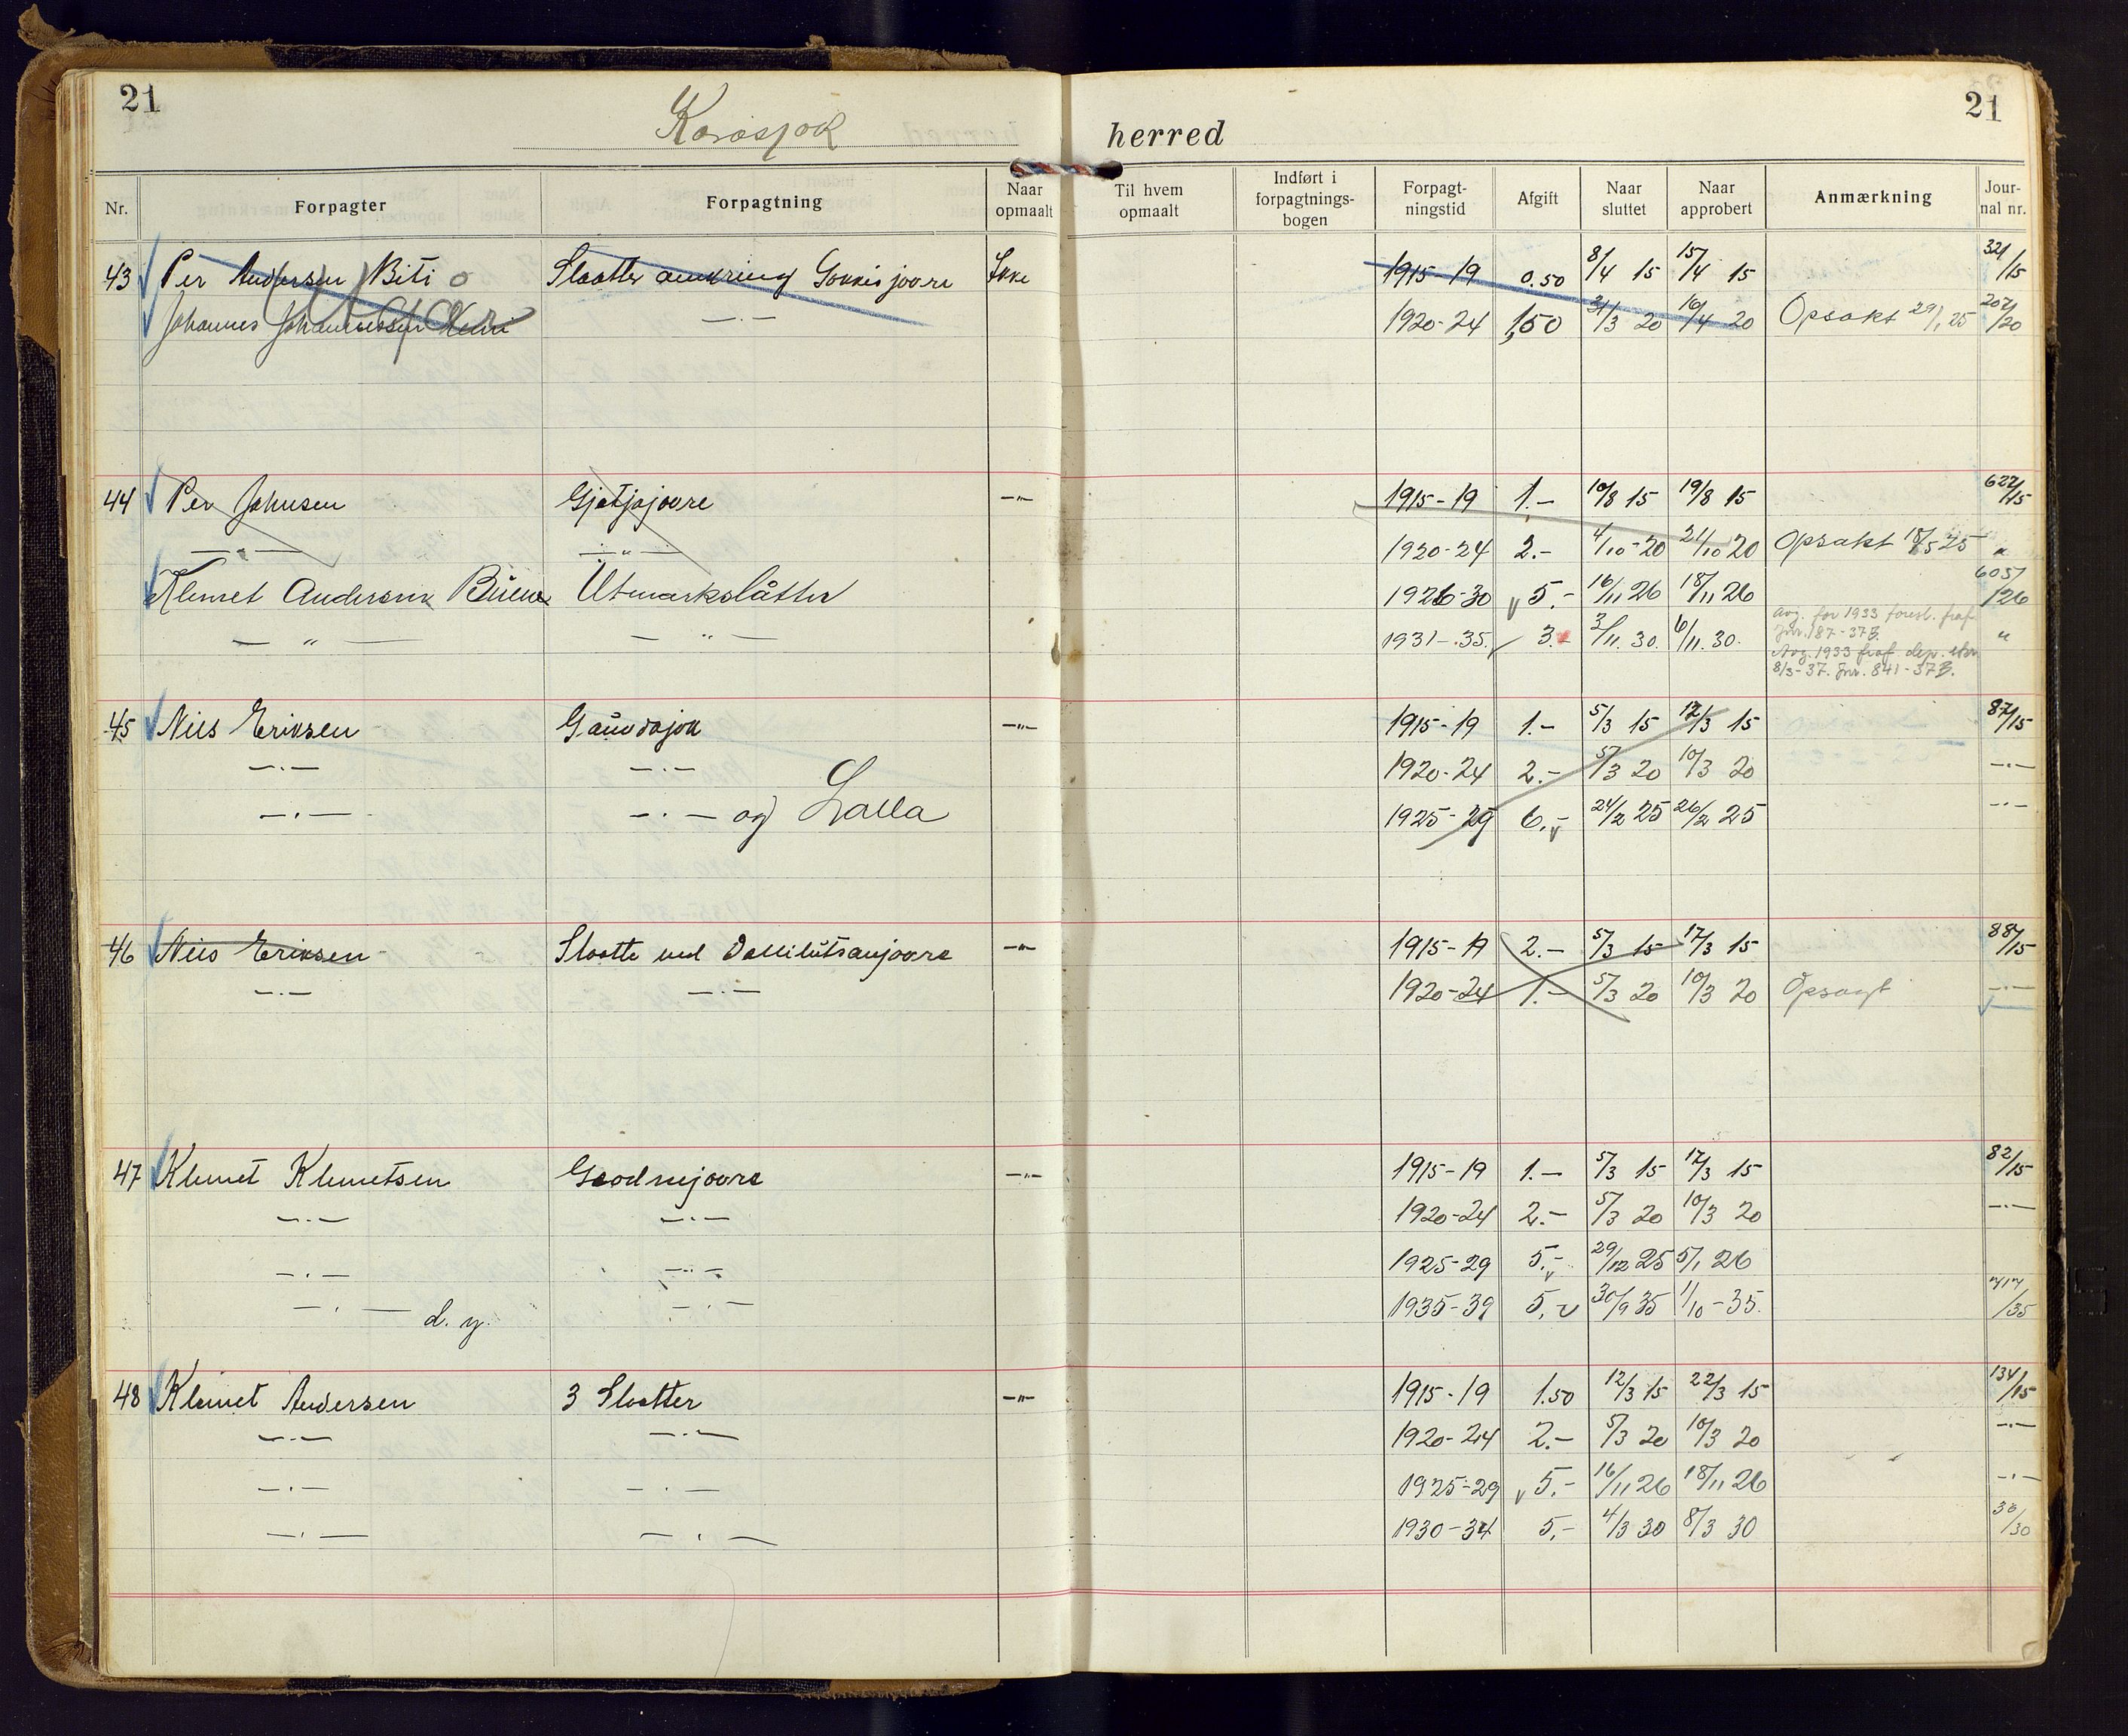 21
Karasjok
herred
21
Nr. Forpagter Forpagtning Naar opmaalt Til hvem opmaalt Indført i forpagtnings-bogen Forpagt-ningstid Afgift Naar sluttet Naar approbert Anmærkning Jour-nal nr.
43 Per Andersen Biti o Slaatter omkring Gokkisjavre Ikke 1915-19 0.50 8/4 15 15/4 15 321/15
Johannes Johannessen —.— 1920-24 1,50 31/3 20 10/4 20 Opsakt 29/1 25 207/20
44 Per Johnsen Gjetjajavre —"— 1915-19 1.- 10/8 15 19/8 15 622/15
—"— —"— 1920-24 2.- 4/10-20 21/10 20 Opsakt 18/5 25 "
Klemet Andersen Utmarkslåtter 1926-30 5.- 16/11 26 18/11 26 605/26
—"— —"— 1931-35. 3.- 3/11. 30. 6/11. 30. Avg. for 1933 foresl. fraf. "
Jnr. 187-37B.
Avg. 1933 fraf. dep. skr.
8/3-37. Jnr. 841-37B.
45 Nils Eriksen Gauvdajok —"— 1915-19 1.- 5/3 15 12/3 15 87/15
—.— —.— 1920-24 2.- 5/3 20 10/3 20 —.—
—.— —.— og Lalla 1925-29 6.- 24/2 25 26/2 25 —.—
46 Nils Eriksen Slaatte ved —"— 1915-19 2.- 5/3 15 12/3 15 88/15
—.— —.— 1920-24 1.- 5/3 20 10/3 20 Opsagt —.—
47 Klemet Klemetsen Geodnejavre —"— 1915-19 1.- 5/3 15 12/3 15 82/15
—.— —.— 1920-24 2.- 5/3 20 10/3 20 —.—
—.— —.— 1925-29 5.- 29/12 25 5/1 26
—.— d. y. —.— 1935-39 5.- 30/9 35 1/10-35. 717/35
48 Klemet Andersen 3 Slaatter —"— 1915-19 1.50 12/3 15 22/3 15 134/15
—.— —.— 1920-24 2.- 5/3 20 10/3 20 —.—
—.— —.— 1925-29 5.- 16/11 26 18/11 26 —.—
—.— —.— 1930-34 5.- 4/3 30 8/3 30 30/30